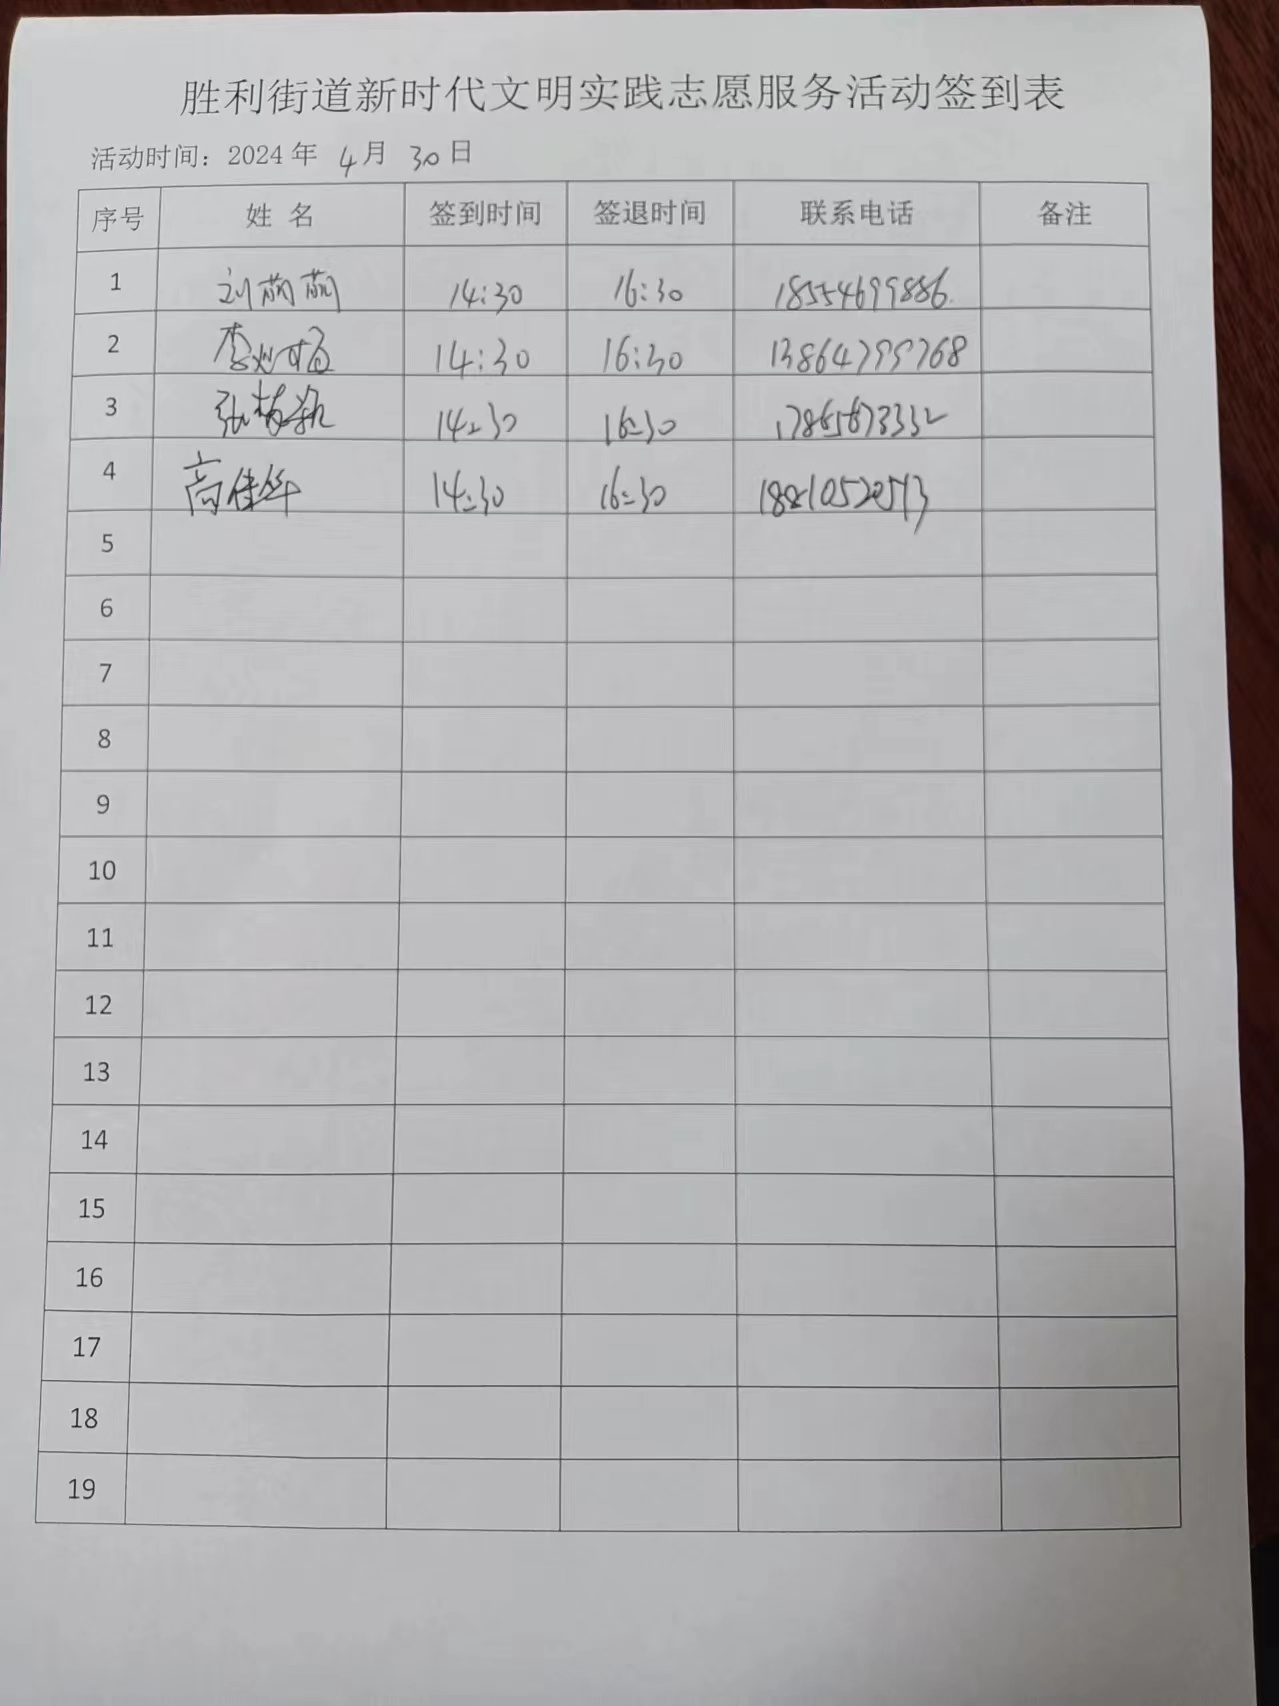 胜利街道新时代文明实践志愿服务活动签到表
活动时间：2024 年 4 月 30 日
序号 姓 名 签到时间 签退时间 联系电话 备注
1 刘萌萌 14:30 16:30 18554699886
2 李 14:30 16:30 13864799768
3 张梅 14:30 16:30 17865673332
4 高佳华 14:30 16:30 18810520513
5
6
7
8
9
10
11
12
13
14
15
16
17
18
19